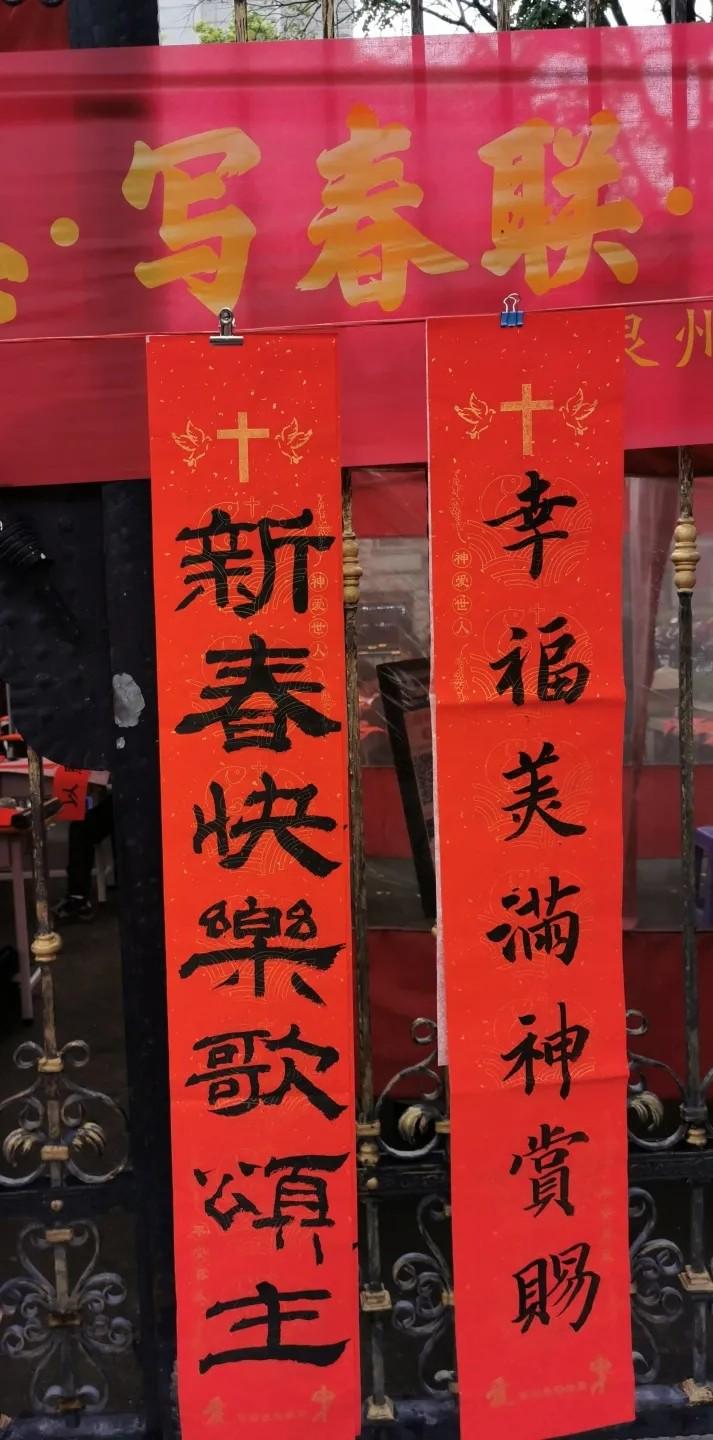 ·写春联·
泉州
新春快樂歌頌主
神爱世人
幸福美满神賞賜
神爱世人